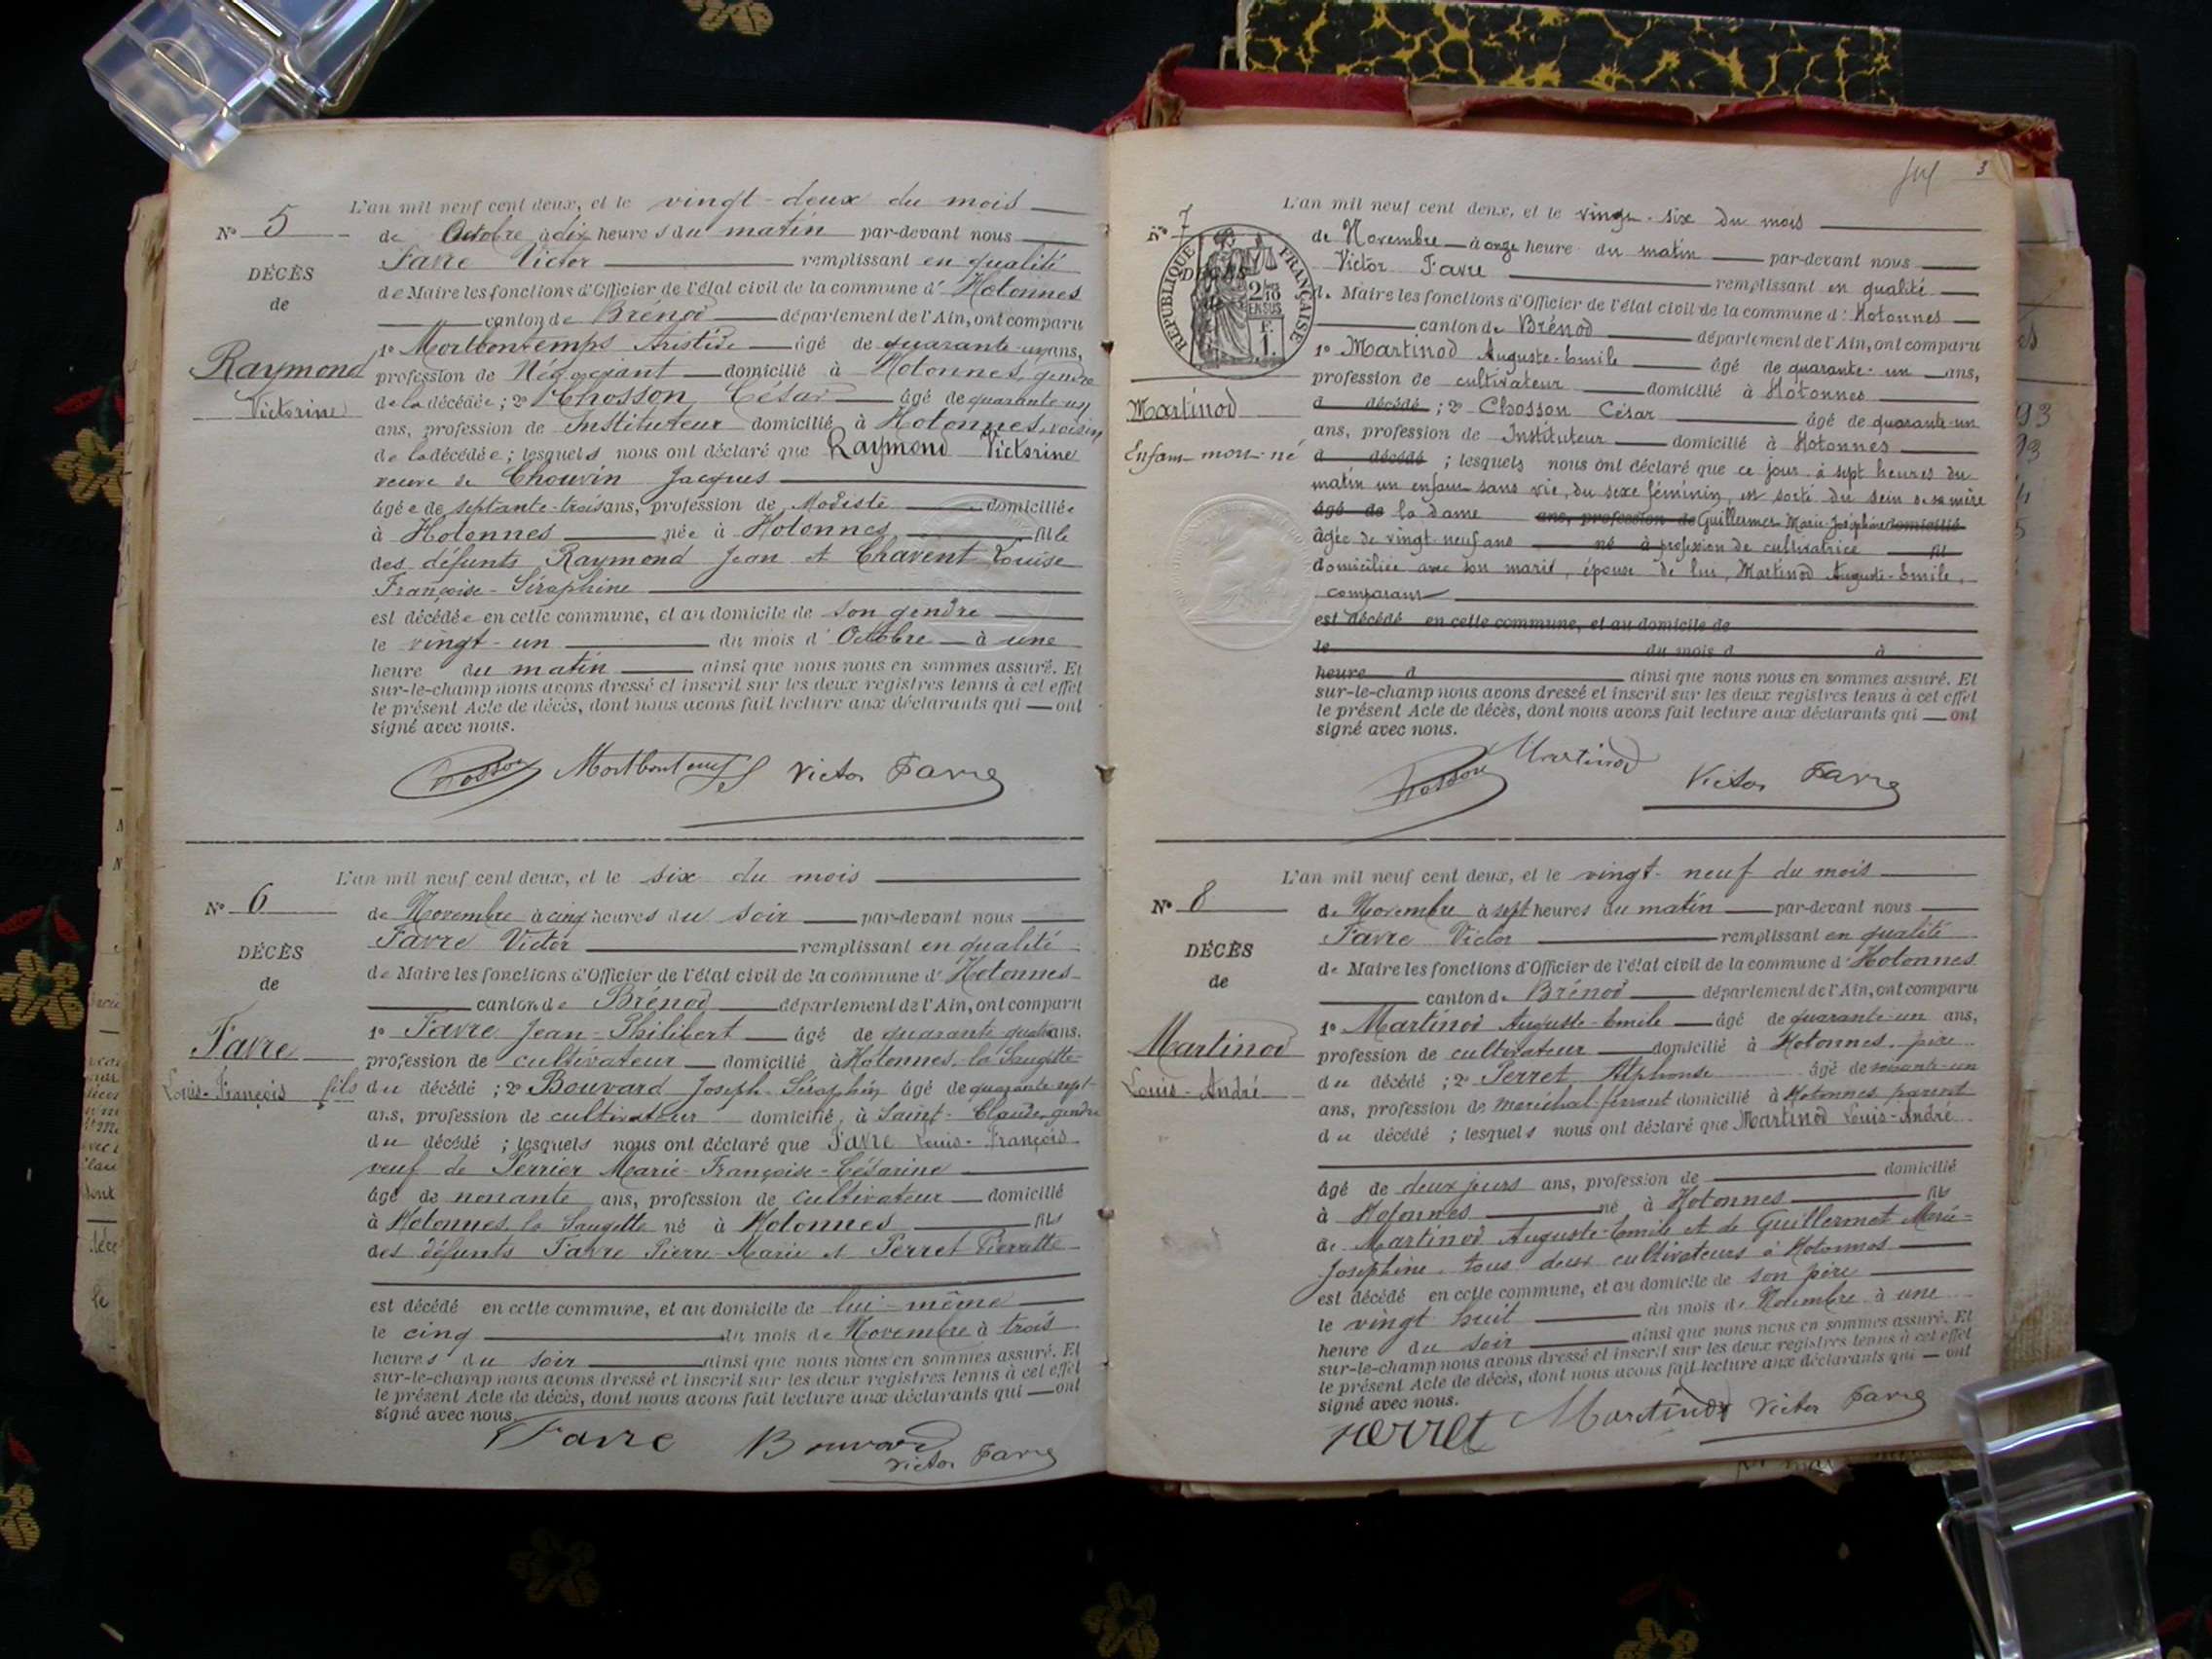 L'an mil neuf cent deux, et le vingt-deux du mois
N° 5
de Octobre à dix heures du matin par-devant nous
Favre Victor remplissant en qualité
DÉCÈS
de Maire les fonctions d'Officier de l'état civil de la commune d'Hotonnes
de
canton de Brénod département de l'Ain, ont comparu
1° Mortbontemps Aristide âgé de quarante-un ans,
Raymond
profession de Négociant domicilié à Hotonnes, gendre
Victorine
de la décédée ; 2° Chosson César âgé de quarante-un
ans, profession de Instituteur domicilié à Hotonnes, voisin
de la décédée ; lesquels nous ont déclaré que Raymond Victorine
veuve de Chouvin Jacques
âgée de septante-trois ans, profession de Modiste domiciliée
à Hotonnes née à Hotonnes fille
des défunts Raymond Jean et Chavent Louise
Françoise-Séraphine
est décédée en cette commune, et au domicile de son gendre
le vingt-un du mois d'Octobre à une
heure du matin ainsi que nous nous en sommes assuré. Et
sur-le-champ nous avons dressé et inscrit sur les deux registres tenus à cet effet
le présent Acte de décès, dont nous avons fait lecture aux déclarants qui ont
signé avec nous.
Chosson Mortbontemps Victor Favre
L'an mil neuf cent deux, et le six du mois
N° 6
de Novembre à cinq heures du soir par-devant nous
Favre Victor remplissant en qualité
DÉCÈS
de Maire les fonctions d'Officier de l'état civil de la commune d'Hotonnes
de
canton de Brénod département de l'Ain, ont comparu
1° Favre Jean-Philibert âgé de quarante-quatre ans,
Favre
profession de cultivateur domicilié à Hotonnes, la Saugette
Louis-François
fils du décédé ; 2° Bouvard Joseph-Séraphin âgé de quarante-sept
ans, profession de cultivateur domicilié à Saint-Claude, gendre
du décédé ; lesquels nous ont déclaré que Favre Louis-François
veuf de Perrier Marie-Françoise-Césarine
âgé de nonante ans, profession de cultivateur domicilié
à Hotonnes, la Saugette né à Hotonnes fils
des défunts Favre Pierre-Marie et Perret Pierrette
est décédé en cette commune, et au domicile de lui-même
le cinq du mois de Novembre à trois
heures du soir ainsi que nous nous en sommes assuré. Et
sur-le-champ nous avons dressé et inscrit sur les deux registres tenus à cet effet
le présent Acte de décès, dont nous avons fait lecture aux déclarants qui ont
signé avec nous.
Favre Bouvard
Victor Favre
3
L'an mil neuf cent deux, et le vingt-six du mois
N° 7
de Novembre à onze heure du matin par-devant nous
Victor Favre remplissant en qualité
DÉCÈS
RÉPUBLIQUE FRANÇAISE
2/10 EN SUS
1 F.
de Maire les fonctions d'Officier de l'état civil de la commune d'Hotonnes
canton de Brénod département de l'Ain, ont comparu
1° Martinod Auguste-Emile âgé de quarante-un ans,
profession de cultivateur domicilié à Hotonnes
Martinod
d décédé ; 2° Chosson César âgé de quarante-un
ans, profession de Instituteur domicilié à Hotonnes
Enfant mort-né
d décédé ; lesquels nous ont déclaré que ce jour à sept heures du
matin un enfant sans vie, du sexe féminin, est sorti du sein de sa mère
âgé de la dame ans, profession de Guillermet Marie-Joséphine domicilié
âgée de vingt-neuf ans né à profession de cultivatrice fil
domiciliée avec son mari, épouse de lui, Martinod Auguste-Emile,
comparant
est décédé en cette commune, et au domicile de
le du mois d à
heure d ainsi que nous nous en sommes assuré. Et
sur-le-champ nous avons dressé et inscrit sur les deux registres tenus à cet effet
le présent Acte de décès, dont nous avons fait lecture aux déclarants qui ont
signé avec nous.
Chosson Martinod Victor Favre
L'an mil neuf cent deux, et le vingt-neuf du mois
N° 8
de Novembre à sept heures du matin par-devant nous
Favre Victor remplissant en qualité
DÉCÈS
de Maire les fonctions d'Officier de l'état civil de la commune d'Hotonnes
de
canton de Brénod département de l'Ain, ont comparu
1° Martinod Auguste-Emile âgé de quarante-un ans,
Martinod
profession de cultivateur domicilié à Hotonnes, père
Louis-André
du décédé ; 2° Perret Alphonse âgé de soixante-un
ans, profession de maréchal-ferrant domicilié à Hotonnes parent
du décédé ; lesquels nous ont déclaré que Martinod Louis-André
âgé de deux jours ans, profession de domicilié
à Hotonnes né à Hotonnes fils
de Martinod Auguste-Emile et de Guillermet Marie-
Joséphine, tous deux cultivateurs à Hotonnes
est décédé en cette commune, et au domicile de son père
le vingt huit du mois de Novembre à une
heure du soir ainsi que nous nous en sommes assuré. Et
sur-le-champ nous avons dressé et inscrit sur les deux registres tenus à cet effet
le présent Acte de décès, dont nous avons fait lecture aux déclarants qui ont
signé avec nous.
Perret Martinod Victor Favre